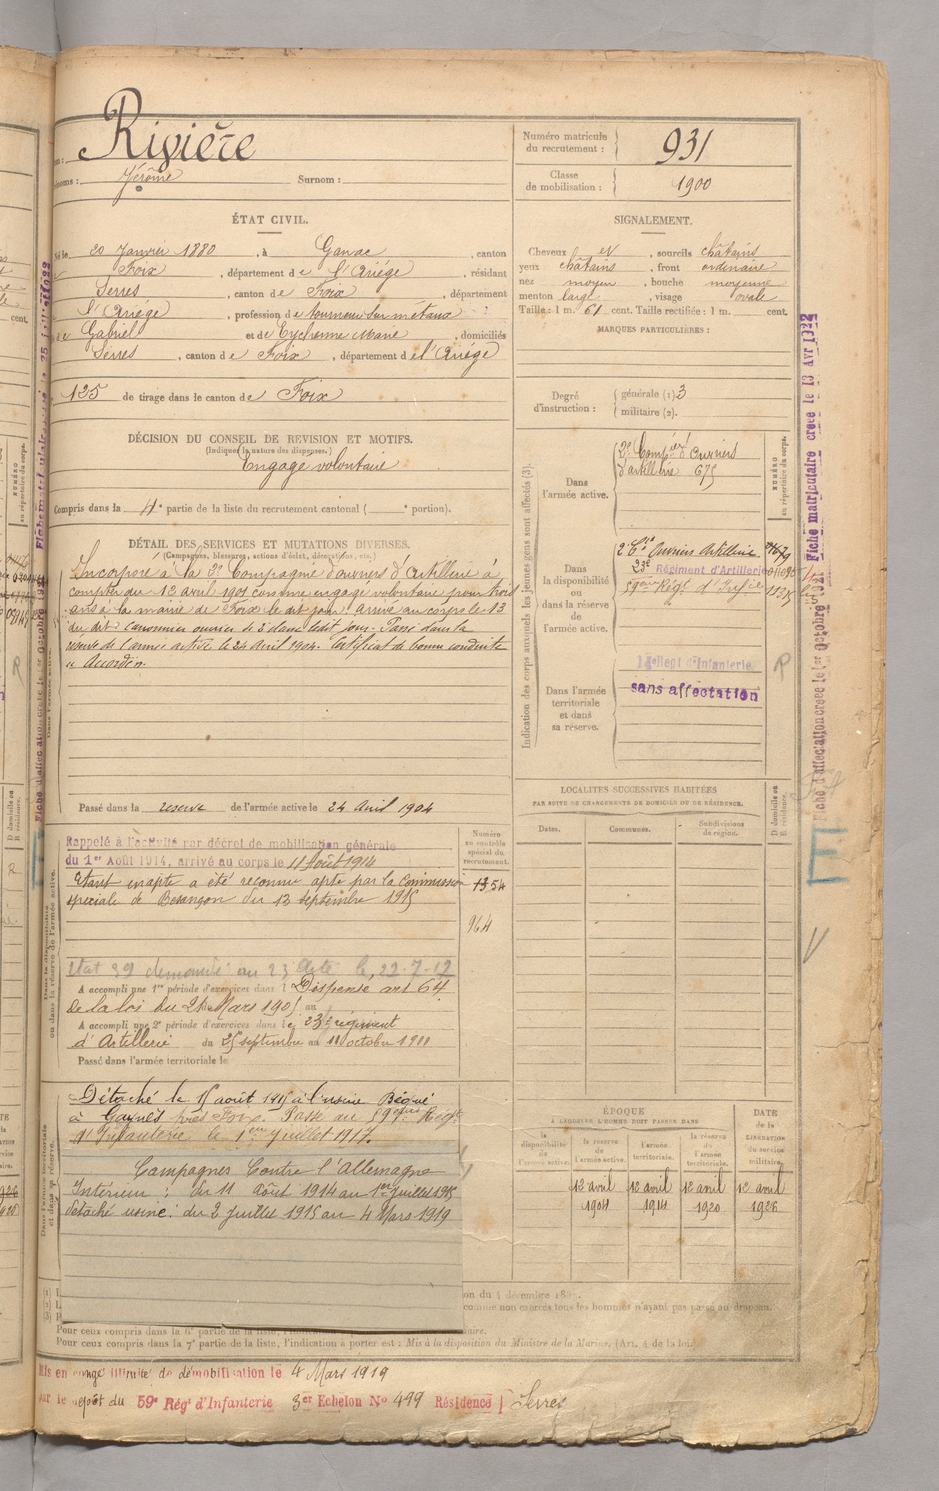 Rivière
Numéro matricule
du recrutement :
931
Jérôme
Surnom :
Classe
de mobilisation :
1900
ÉTAT CIVIL.
20 Janvier 1880 , à Ganac , canton
Foix , département de l'Ariége , résidant
Serres , canton de Foix , département
l'Ariége , profession de tourneur sur métaux
Gabriel et de Eychenne Marie , domiciliés
Serres , canton de Foix , département de l'Ariége
125 de tirage dans le canton de Foix
SIGNALEMENT.
Cheveux et , sourcils châtains
yeux châtains , front ordinaire
nez moyen , bouche moyenne
menton large , visage ovale
Taille : 1 m. 61 cent. Taille rectifiée : 1 m. cent.
MARQUES PARTICULIÈRES :
Degré
d'instruction :
générale (1) 3
militaire (2).
DÉCISION DU CONSEIL DE REVISION ET MOTIFS.
(Indiquer la nature des dispenses.)
Engagé volontaire
Compris dans la 4e partie de la liste du recrutement cantonal ( e portion).
DÉTAIL DES SERVICES ET MUTATIONS DIVERSES.
(Campagnes, blessures, actions d'éclat, décorations, etc.)
Incorporé à la 3e Compagnie d'ouvriers d'Artillerie à
compter du 12 avril 1901 comme engagé volontaire pour trois
ans à la mairie de Foix le dit jour. Arrivé au corps le 13
du dit. Canonnier ouvrier de 2e classe le dit jour. Passé dans la
réserve de l'armée active le 24 avril 1904. Certificat de bonne conduite
"Accordé".
Passé dans la réserve de l'armée active le 24 avril 1904
Indication des corps auxquels les jeunes gens sont affectés (3).
NUMÉRO
au répertoire du corps.
Dans
l'armée active.
d'Ouvriers
d'artillerie 675
Dans
la disponibilité
ou
dans la réserve
de
l'armée active.
2e Cie Ouvriers Artillerie
23e Régiment d'Artillerie
59eme Régt d'Infie
Dans l'armée
territoriale
et dans
sa réserve.
Régt d'Infanterie
sans affectation
Rappelé à l'activité par décret de mobilisation générale
du 1er Août 1914, arrivé au corps le 11 Août 1914
Étant inapte a été reconnu apte par la Commission
spéciale de Besançon du 13 septembre 1915
Numéro
au contrôle
spécial du
recrutement.
1354
964
A accompli une 1re période d'exercices dans l Dispensé art 64
de la loi du 21 Mars 1905 au
A accompli une 2e période d'exercices dans le 23e régiment
d'Artillerie du 25 septembre au 11 octobre 1911
Passé dans l'armée territoriale le
LOCALITÉS SUCCESSIVES HABITÉES
PAR SUITE DE CHANGEMENTS DE DOMICILE OU DE RÉSIDENCE.
Dates.
Communes.
Subdivisions
de région.
D domicile ou
R résidence.
Détaché le 15 août 1915 à l'usine
à près Foix. Passé au 59eme Régt
d'Infanterie le 1er juillet 1917.
Campagnes Contre l'Allemagne
Intérieur : du 11 Août 1914 au 1er juillet 1915
détaché usine : du 2 juillet 1915 au 4 Mars 1919
ÉPOQUE
À LAQUELLE L'HOMME DOIT PASSER DANS
la
disponibilité
de
l'armée active.
la réserve
de
l'armée active.
l'armée
territoriale.
la réserve
de
l'armée
territoriale.
DATE
de la
LIBÉRATION
du service
militaire.
12 avril
1904
12 avril
1914
12 avril
1920
12 avril
1926
comme non exercés tous les hommes n'ayant pas passé au drapeau.
Pour ceux compris dans la 6e partie de la liste,
Pour ceux compris dans la 7e partie de la liste, l'indication à porter est : Mis à la disposition du Ministre de la Marine. (Art. 4 de la loi.
Mis en congé illimité de démobilisation le 4 Mars 1919
par le dépôt du 59e Régt d'Infanterie 3er Echelon No 499 Résidence Serres
Fiche matriculaire créée le 13 Avr 1922
Fiche d'affectation créée le 1er octobre 1921
E